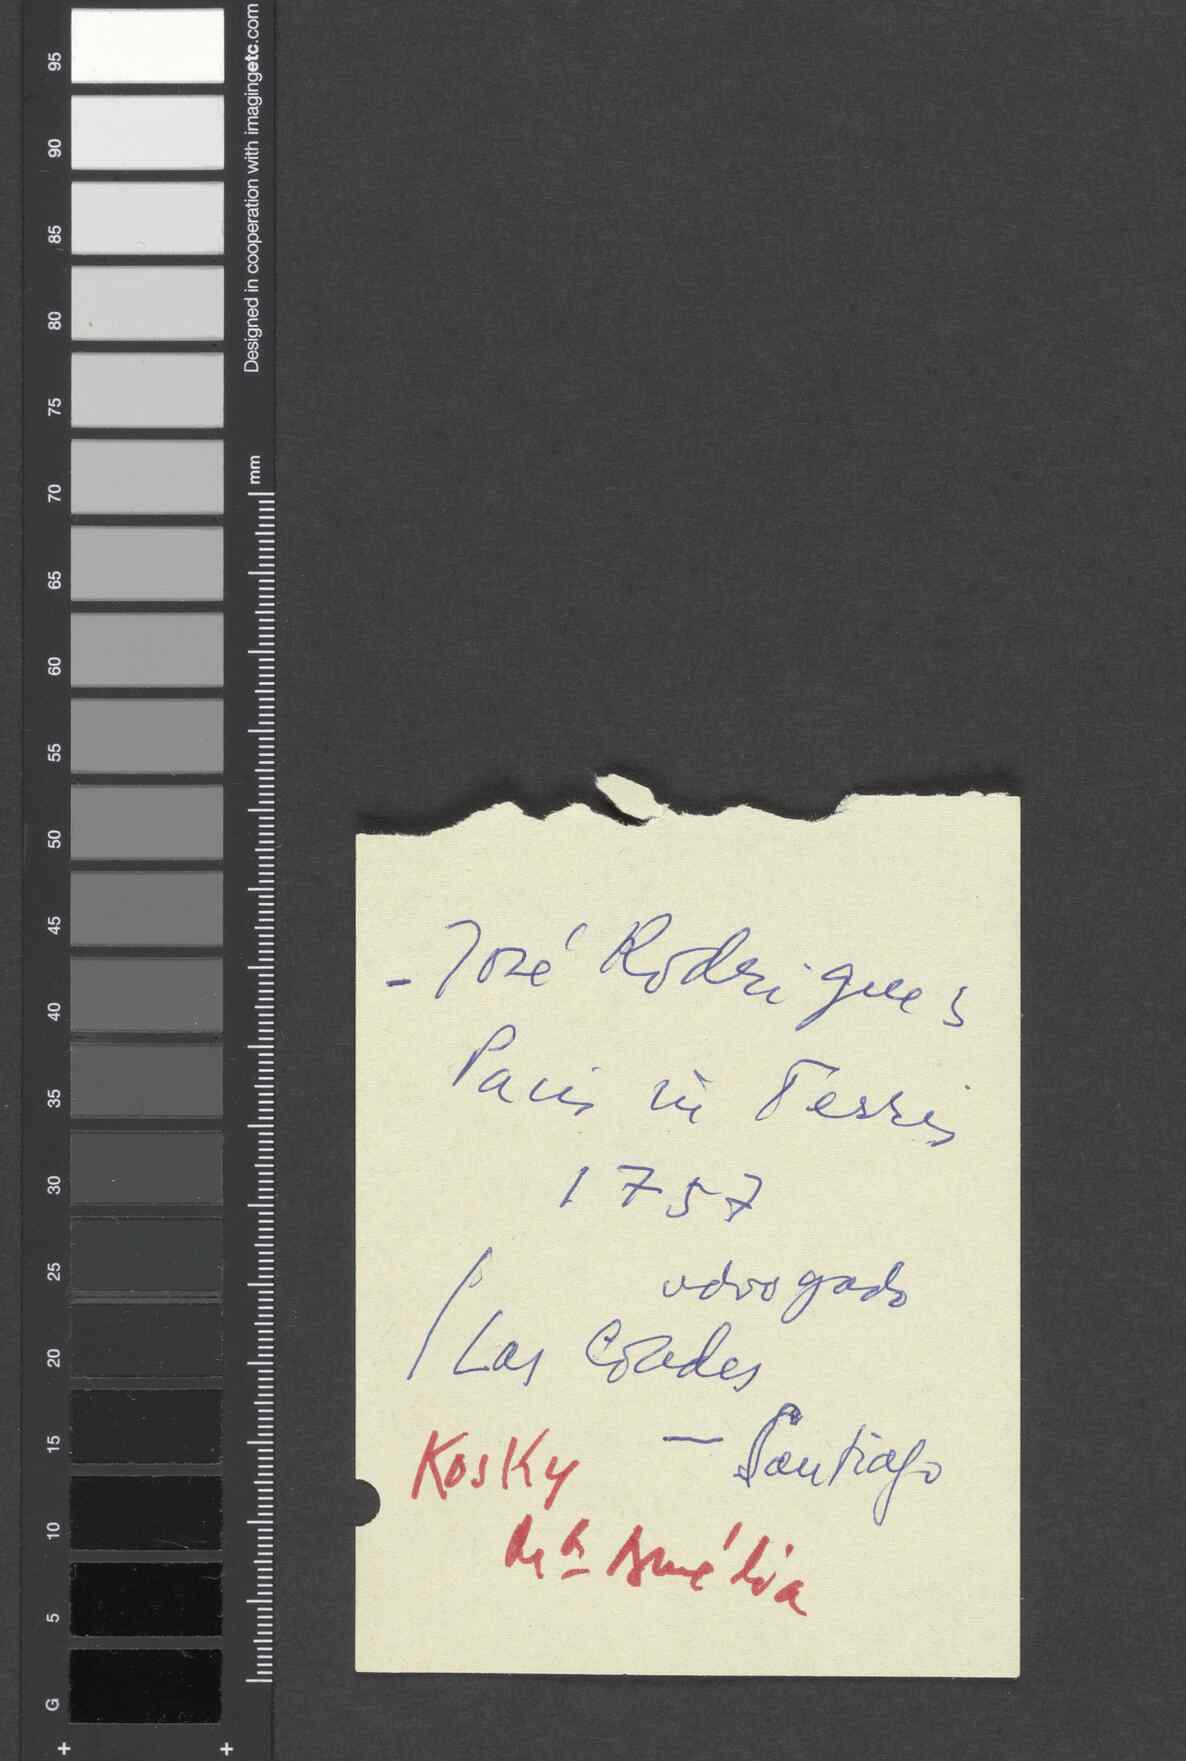 95
90
85
80
75
70
65
60
55
50
45
40
35
30
25
20
15
10
5
G
Designed in cooperation with imagingetc.com
mm
- José Rodrigues
Pacis in Terris
1757
advogado
/ Las Condes
— Santiago
Kosky
Amélia